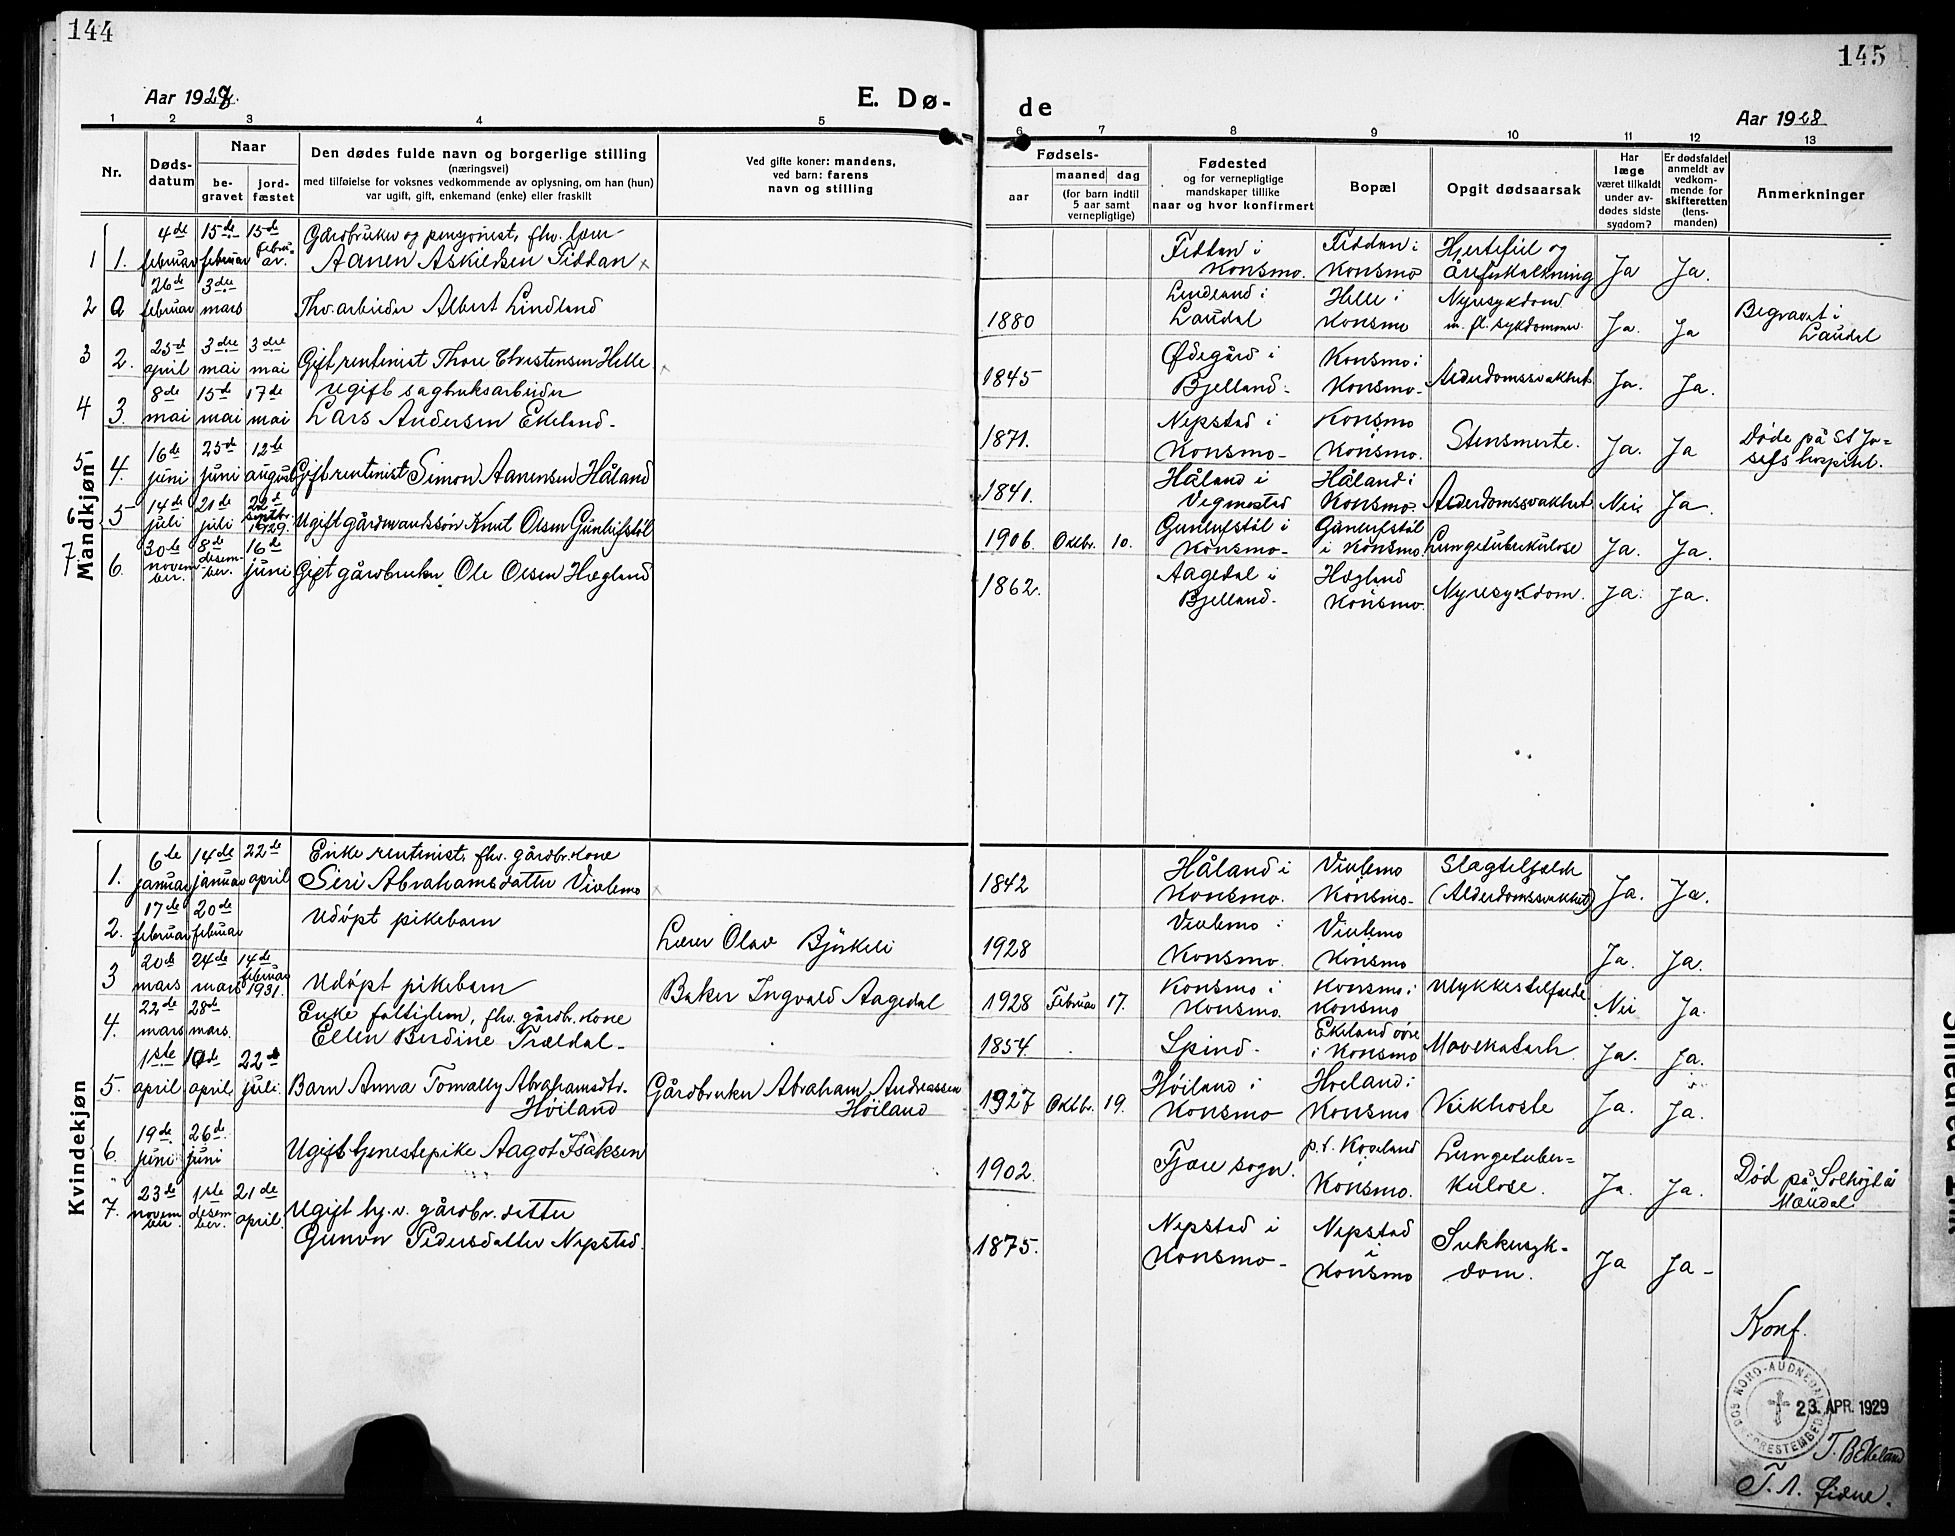 144
145
Aar 1928.
E. Dø-
de
Aar 1928
1
2
3
4
5
6
7
8
9
10
11
12
13
Nr.
Døds-
datum
Naar
be-
gravet
jord-
fæstet
Den dødes fulde navn og borgerlige stilling
(næringsvei)
med tilføielse for voksnes vedkommende av oplysning, om han (hun)
var ugift, gift, enkemand (enke) eller fraskilt
Ved gifte koner: mandens,
ved barn: farens
navn og stilling
Fødsels-
aar
maaned
dag
(for barn indtil
5 aar samt
vernepligtige)
Fødested
og for vernepligtige
mandskaper tillike
naar og hvor konfirmert
Bopæl
Opgit dødsaarsak
Har
læge
været tilkaldt
under av-
dødes sidste
sygdom?
Er dødsfaldet
anmeldt av
vedkom-
mende for
skifteretten
(lens-
manden)
Anmerkninger
Mandkjøn
1 1. 4de februar 15de februar 15de februar. Gårdbruker og pensjonist, fhv. lærer
Aanen Askildsen Fiddan
Fiddan i Konsmo. Fiddan i Konsmo Hjertefeil og åreforkalkning Ja Ja.
2 a 26de februar 3dje mars Thv. arbeider Albert Lindland
1880 Lindland i Laudal Helle i Konsmo Nyresykdom m. fl. sykdommer. Ja. Ja Begravet i Laudal
3 2. 25d april 3dje mai 3dje mai Gift rentenist Thore Christensen Helle
1845 Ødegård i Bjelland- Konsmo i Konsmo- Alderdomssvakhet Ja. Ja.
4 3. 8de mai 15de mai 17de mai Ugift sagbruksarbeider
Lars Andersen Ekeland-
1871. Nepstad i Konsmo- Konsmo Konsmo. Stensmerte. Ja. Ja Døde på St Jo-
sefs hospital.
5 4. 16de juni 25de juni 12te august Gift rentenist Simon Aanensen Håland
1841. Håland i Vegmostad Håland i Konsmo Alderdomssvakhet Nei Ja.
6 5 14de juli 21de juli 22d septbr. 1929. Ugift gårdmandssøn Knut Olsen Gunleifstøl
1906. Oktbr. 10. Gunleifstøl i Konsmo- Gunleifstøl i Konsmo Lungetuberkulose Ja. Ja.
7 6. 30te november. 8de desember. 16de juni Gift gårdbruker Ole Olsen Hægland
1862. Aagedal i Bjelland- Hægland Konsmo. Nyresykdom. Ja. Ja.
Kvindekjøn
1. 6te januar 14de januar 22de april Enke rentenist, fhv. gårdbr. kone
Siri Abrahamsdatter Vivlemo
1842 Håland i Konsmo. Vivlemo Konsmo- Slagtilfælde (Alderdomssvakhet) Ja. Ja.
2. 17de februar 20de februar Udöpt pikebarn
Lærer Olav Bjørkeli
1928 Vivlemo i Konsmo. Vivlemo Konsmo Ja. Ja.
3 20de mars 24de mars 14de februar 1931. Udöpt pikebarn
Baker Ingvald Aagedal
1928 Februar 17. Konsmo i Konsmo. Konsmo i Konsmo Ulykkestilfælde Nei Ja.
4. 22de mars 28de mars. Enke fattiglem, fhv. gårdbr. kone
Ellen Berdine Trældal-
1854. Spind- Ekeland øvre i Konsmo Mavekatarh. Ja. Ja.
5. 1ste april 10de april. 22de juli. Barn Anna Tomally Abrahamsdtr.
Høiland
Gårdbruker Abraham Andreassen
Høiland
1927 Oktbr. 19. Høiland i Konsmo Hoeland i Konsmo Kikhoste Ja. Ja.
6. 19de juni 26de juni Ugift tjenestepike Aagot Isaksen
1902. Fjære sogn. p.t. Koseland i Konsmo. Lungetuber-
kulose. Ja. Ja. Død på Solhøgda
Mandal
7. 23de november. 1ste desember. 21de april. Ugift hj.v. gårdbr. datter
Gunvor Pedersdatter Nepstad.
1875. Nepstad i Konsmo- Nepstad i Konsmo Sukkersyk-
dom. Ja Ja-
Konf.
NORD-AUDNEDAL SOGNEPRESTEMBEDE
23. APR. 1929
T. B. Ekeland